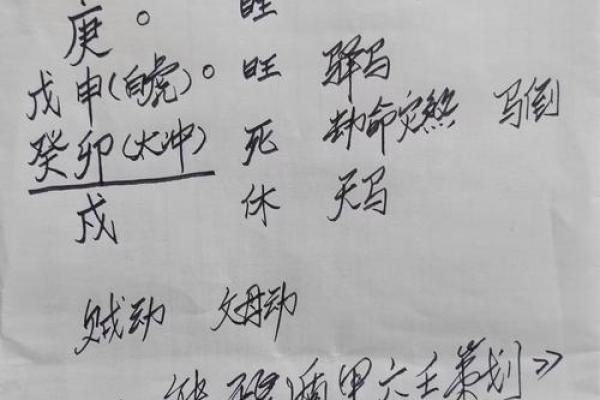 庚。 旺
戊申(白虎)。 旺 驿马
癸卯(太冲) 死 劫命灾煞 马倒
戌 休 天马
贼动 父母动
遁甲六壬策划》